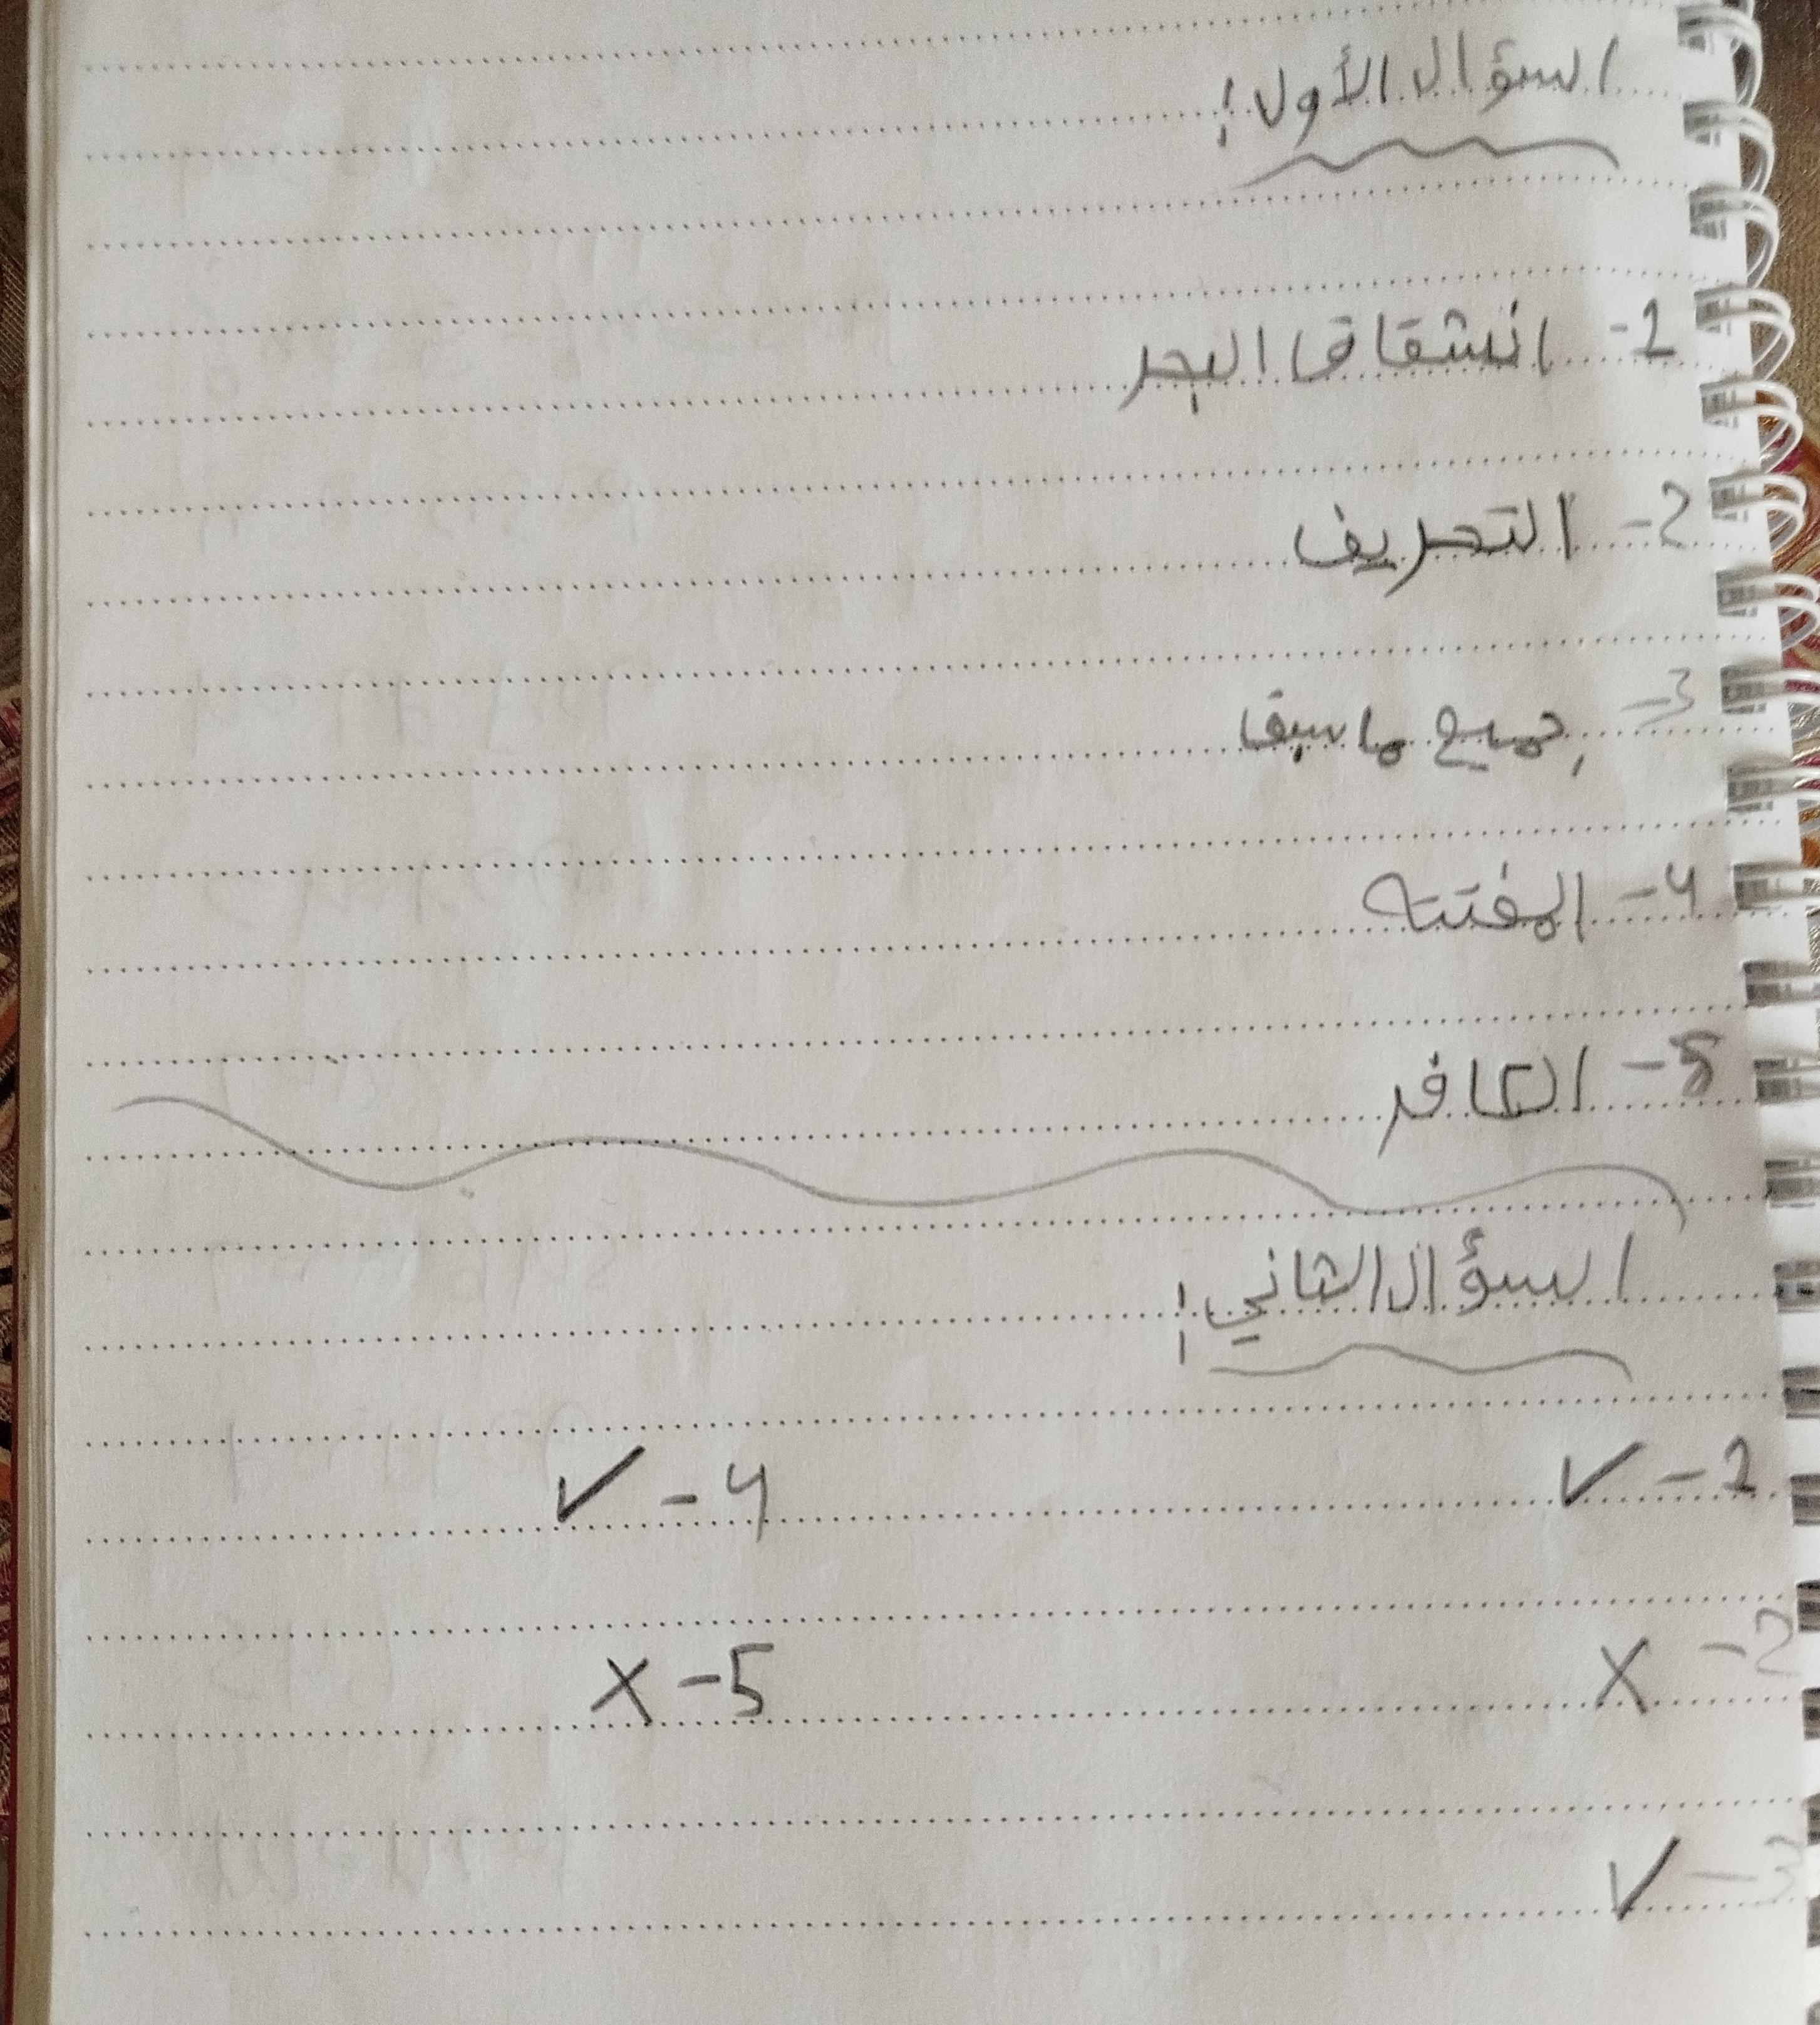 السؤال الأول:
1- انشقاق البحر
2- التحريف
3- جميع ما سبق
4- الفتنه
5- الكافر
السؤال الثاني:
1- ✓
4- ✓
2- ✗
5- ✗
3- ✓